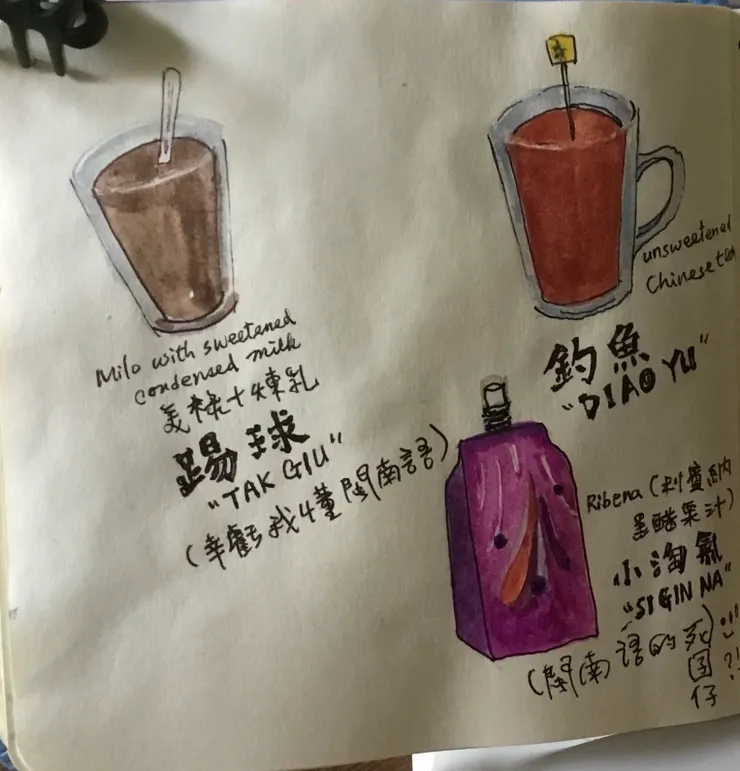 Milo with sweetened
condensed milk
美祿+煉乳
踢球
"TAK GIU"
(幸虧我懂閩南語)
unsweetened
Chinese tea
釣魚
"DIAO YU"
Ribena (利賓納
黑醋果汁)
小淘氣
"SI GIN NA"
(閩南語的死
囝
仔)